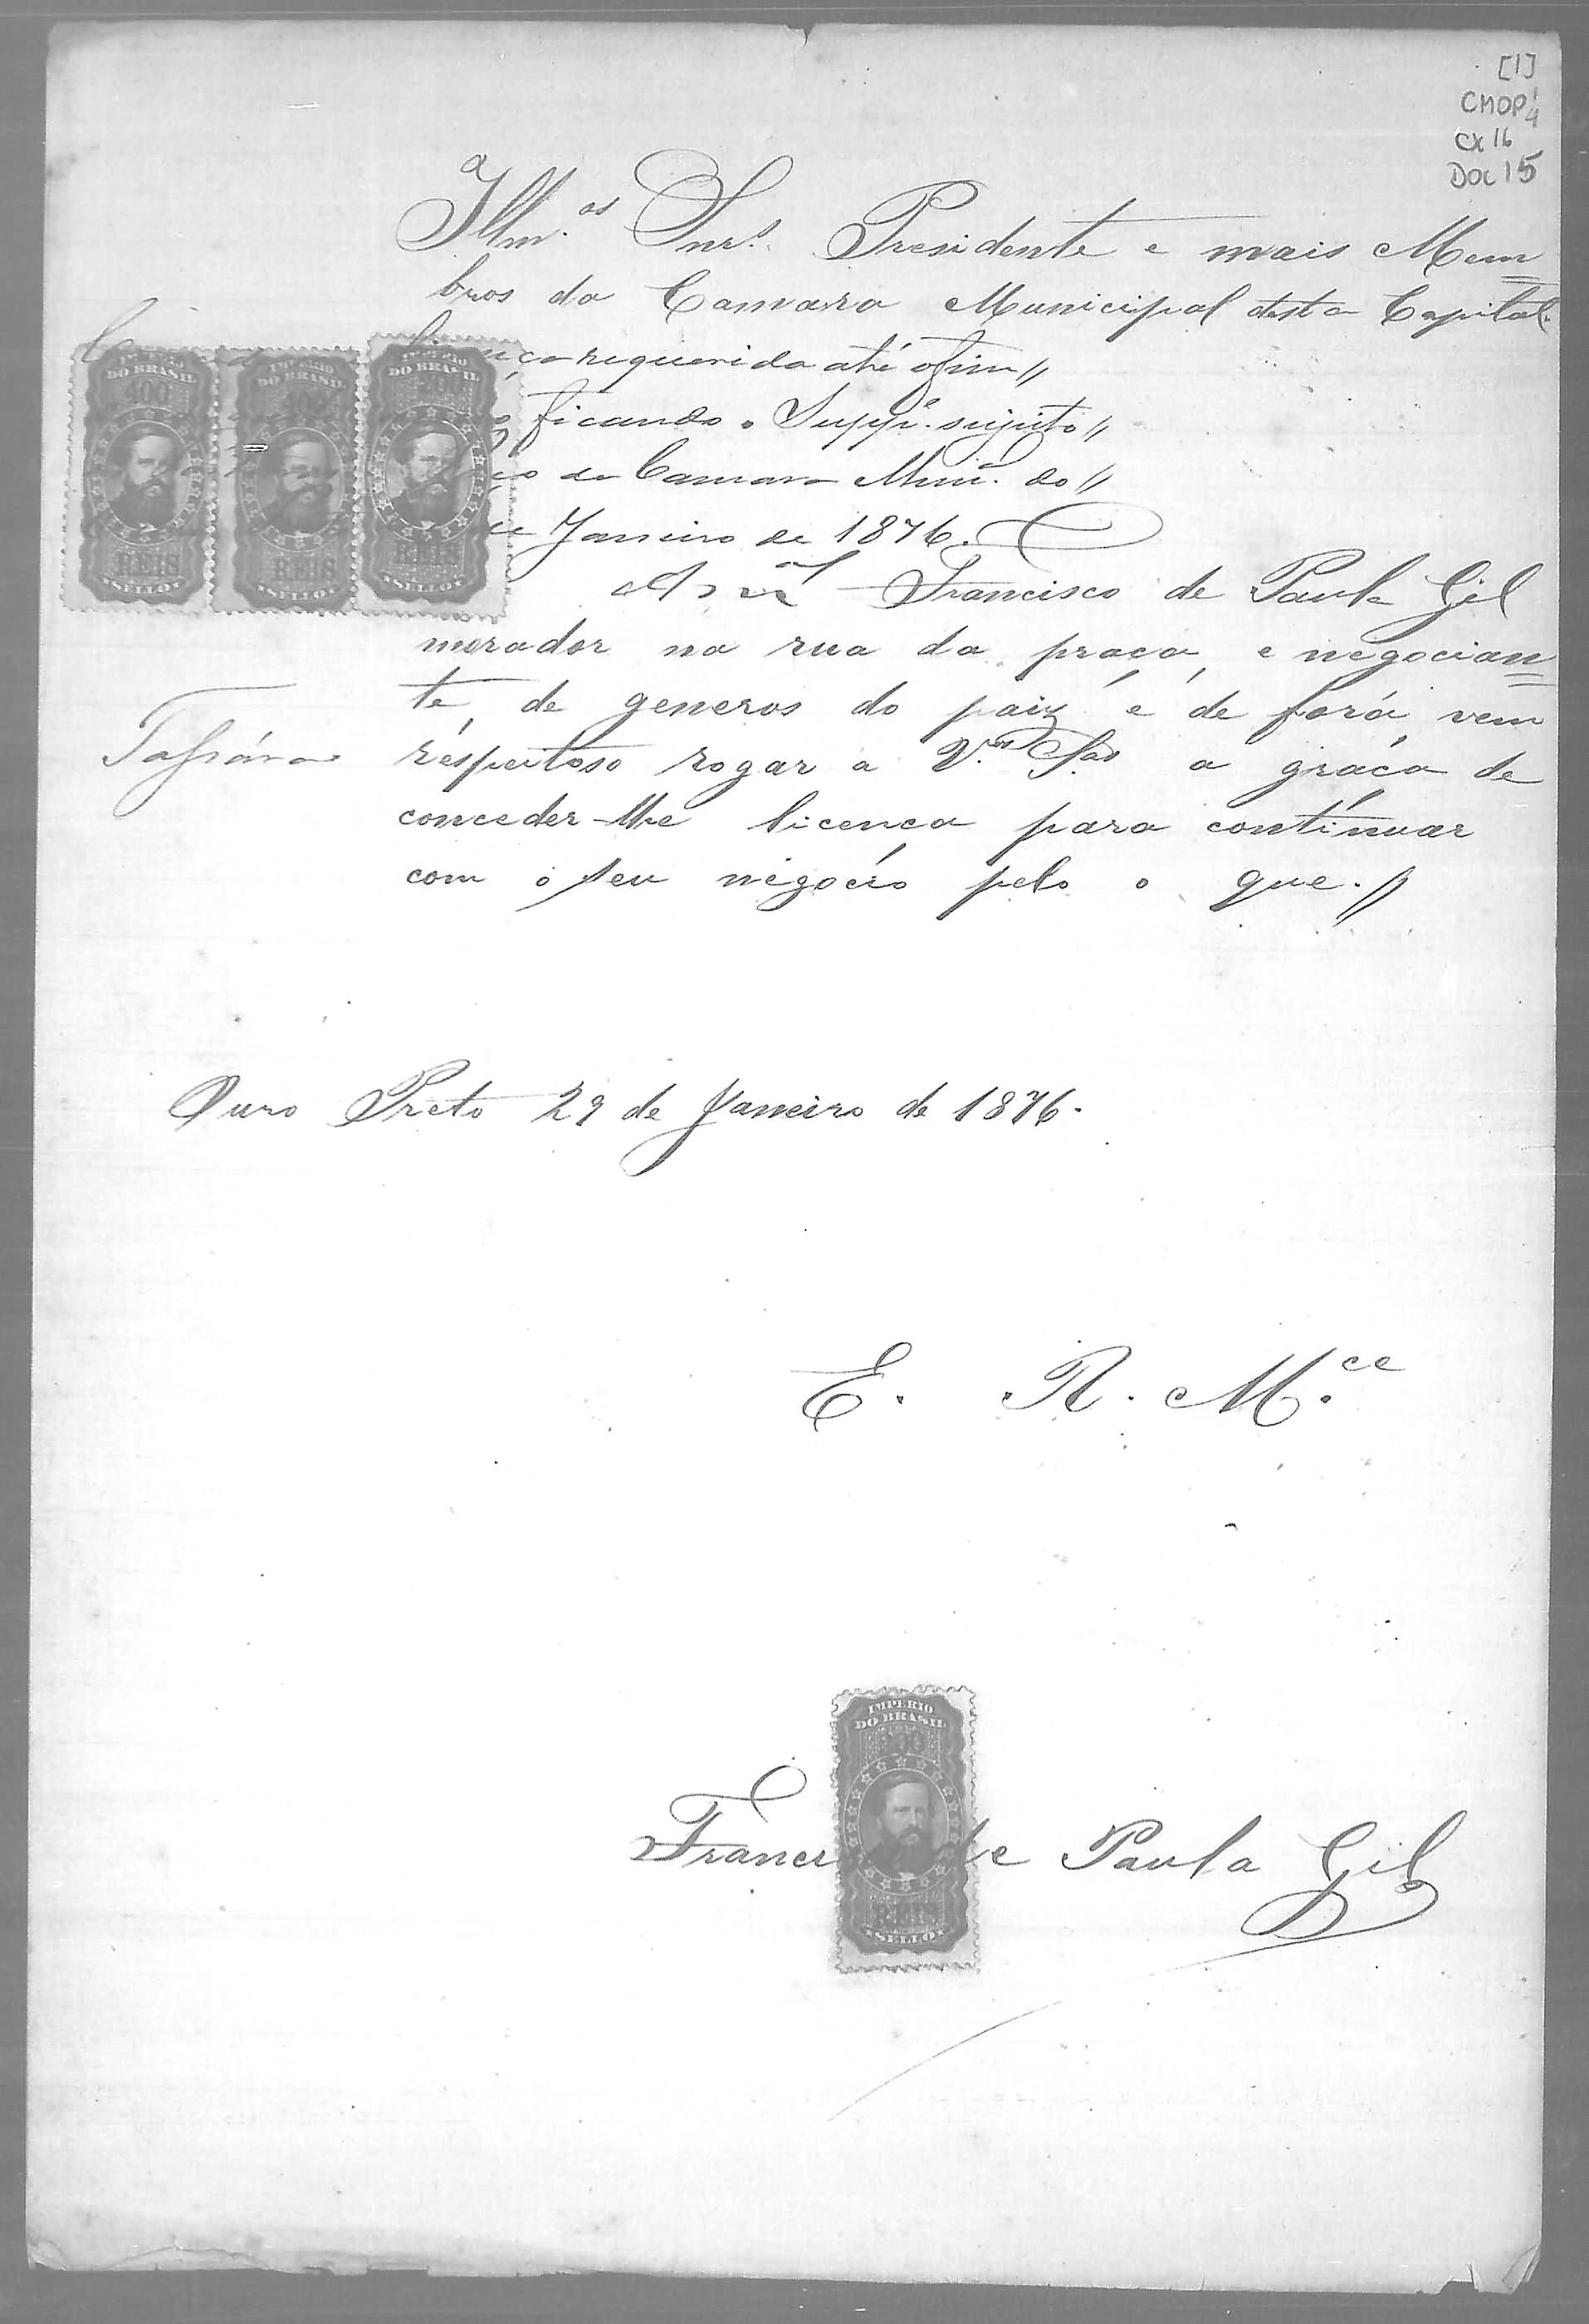 [1]
CMOP 1/4
CX 16
DOC 15
Illm.os Snr.s Presidente e mais Mem=
bros da Camara Municipal desta Capital.
requerida até o fim //
ficando o Supp.e sujeito //
da Camara Mun.al do //
Janeiro de 1876.
Francisco de Paula Gil
morador na rua da praça, e negocian=
te, de generos do paiz e de fóra, vem
respeitoso rogar a V.as S.as a graça de
conceder-lhe licença para continuar
com o seu negocio pelo o que. //
Ouro Preto 29 de Janeiro de 1876.
E. R. M.ce
IMPERIO
DO BRASIL
400
REIS
SELLO
IMPERIO
DO BRASIL
400
REIS
SELLO
IMPERIO
DO BRASIL
REIS
SELLO
IMPERIO
DO BRASIL
200
REIS
SELLO
Franci de Paula Gil